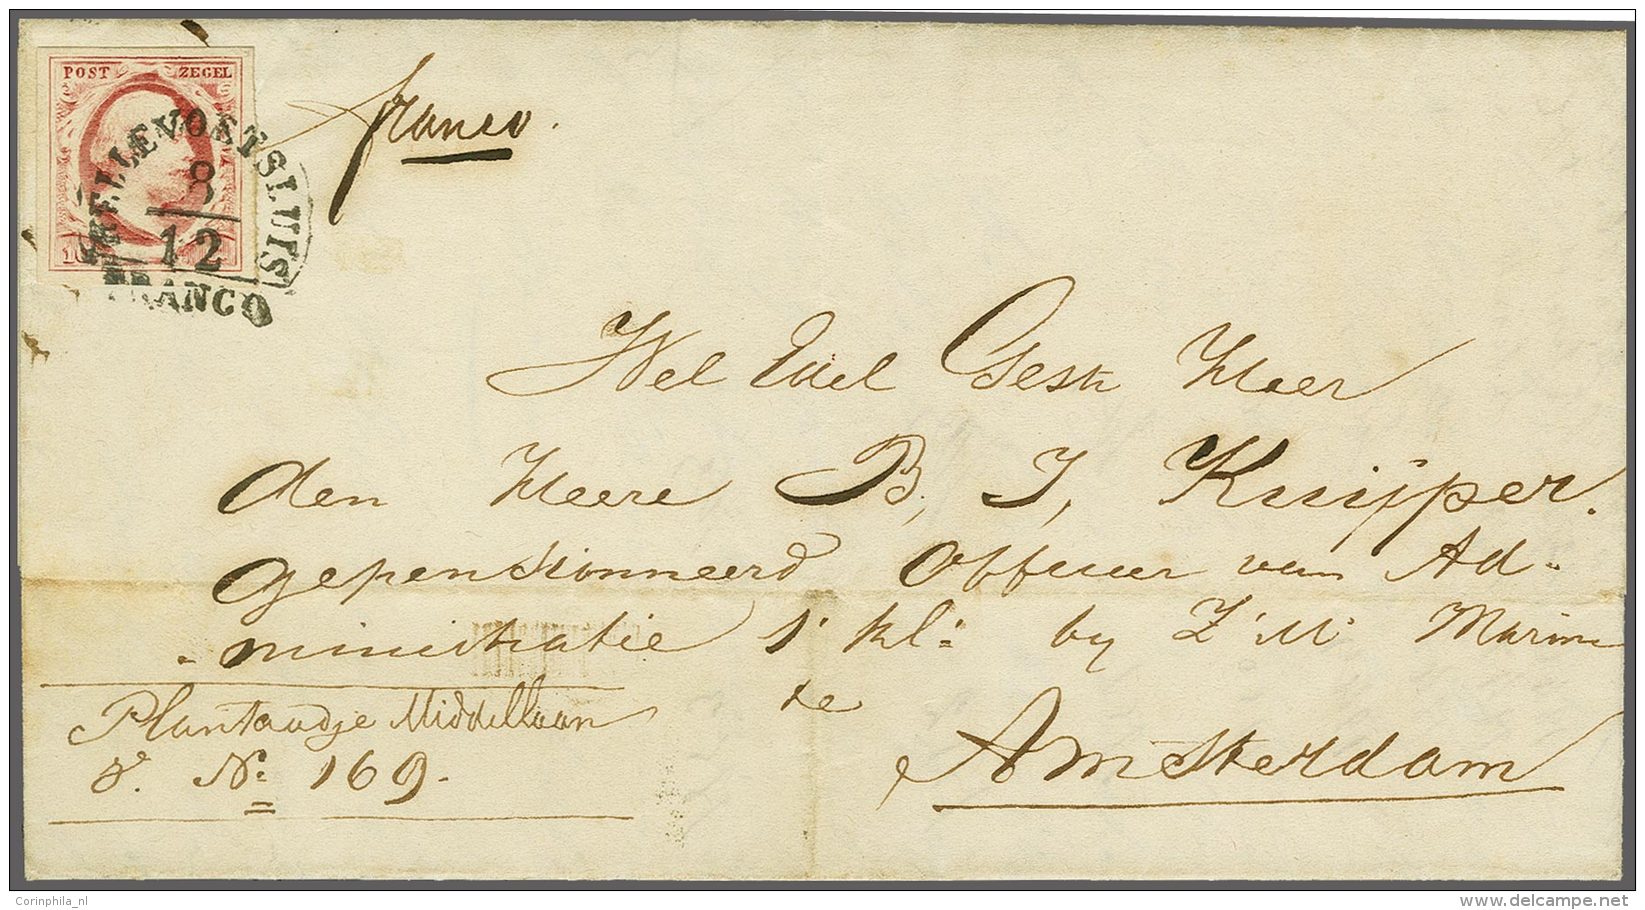 POST ZEGEL
HELLEVOETSLUIS
8
12
FRANCO
franco.
Wel Edel Gestr Heer
den Heere B. J. Kuijper.
gepensionneerd Officier van Ad-
-ministratie 1e kl: by Z: M: Marine
te
Amsterdam
Plantaadje Middellaan
N: 169.
Corinphila_nl
delcampe.net